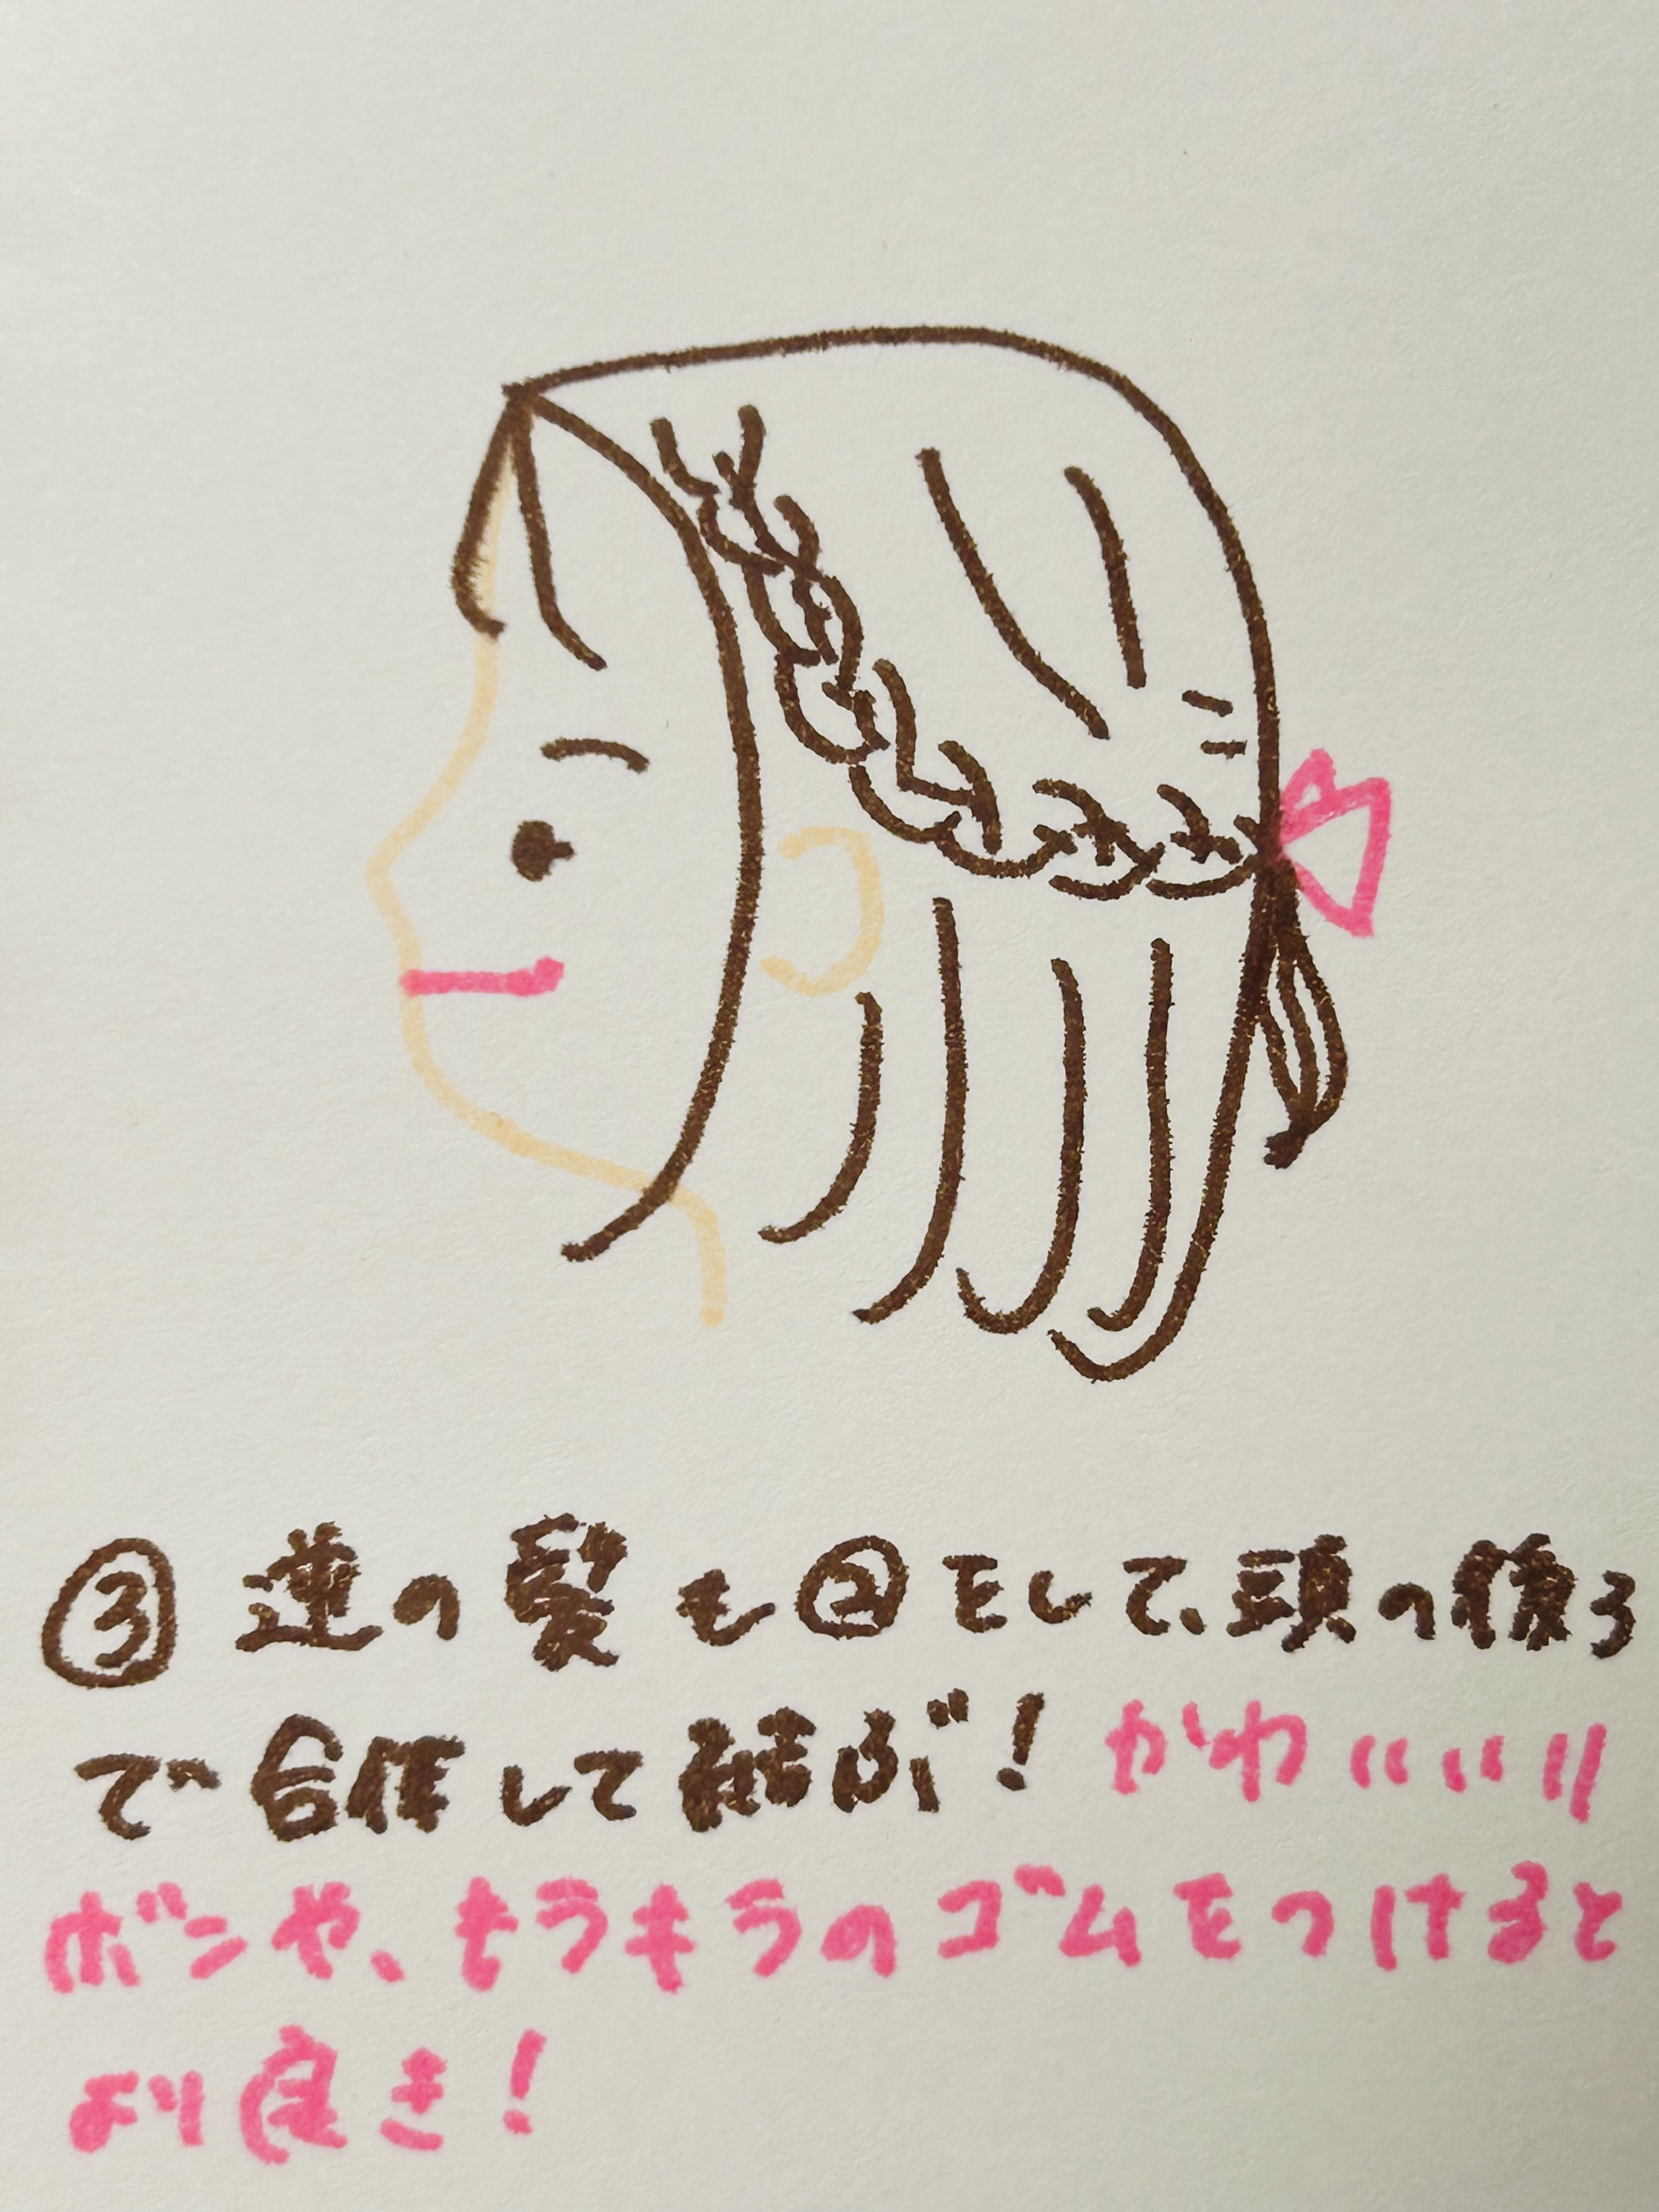 ③ 逆の髪も②をして、頭の後ろ
で合体して結ぶ！かわいいリ
ボンや、キラキラのゴムをつけると
より良き！